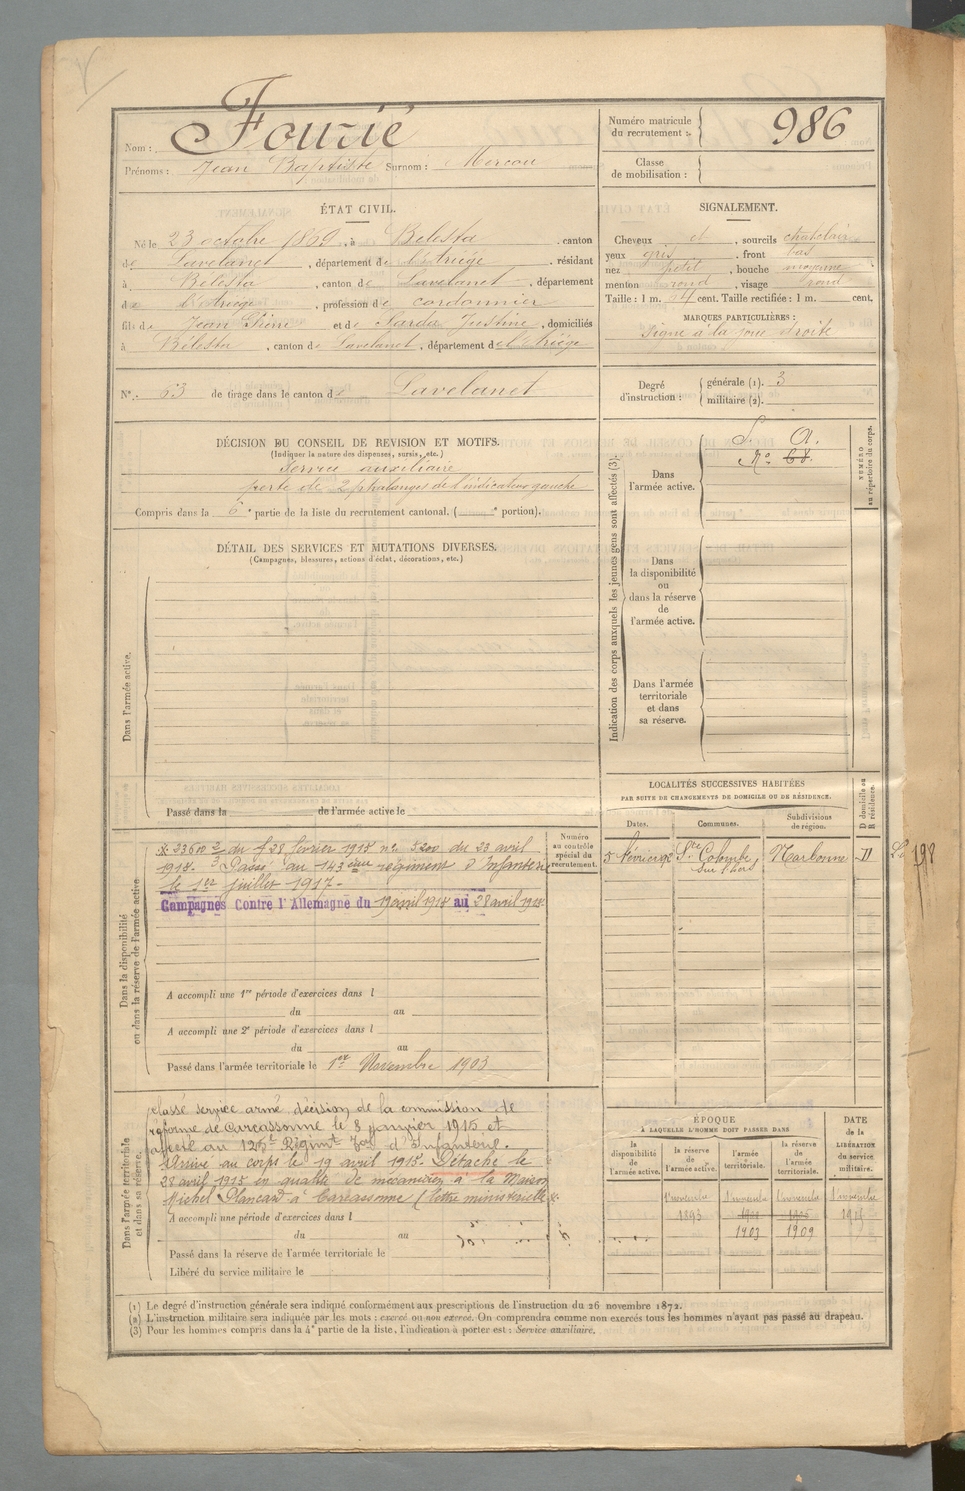 Nom : Fourié
Prénoms : Jean Baptiste Surnom : Mercou
Numéro matricule du recrutement : 986
Classe de mobilisation :
ÉTAT CIVIL.
Né le 23 octobre 1869, à Bélesta, canton
de Lavelanet, département de l'Ariège, résidant
à Bélesta, canton de Lavelanet, département
de l'Ariège, profession de cordonnier
fils de Jean Pierre et de Sarda Justine, domiciliés
à Bélesta, canton de Lavelanet, département de l'Ariège
SIGNALEMENT.
Cheveux et, sourcils chatclair
yeux gris, front bas
nez petit, bouche moyenne
menton rond, visage rond
Taille : 1 m. 64 cent. Taille rectifiée : 1 m. cent.
MARQUES PARTICULIÈRES :
Signe à la joue droite
N° 63 de tirage dans le canton de Lavelanet
Degré d'instruction : générale (1). 3
militaire (2).
DÉCISION DU CONSEIL DE REVISION ET MOTIFS.
(Indiquer la nature des dispenses, sursis, etc.)
Service auxiliaire
perte de 2 phalanges de l'indicateur gauche
Compris dans la 6e partie de la liste du recrutement cantonal. ( e portion).
DÉTAIL DES SERVICES ET MUTATIONS DIVERSES.
(Campagnes, blessures, actions d'éclat, décorations, etc.)
Dans l'armée active.
Passé dans la de l'armée active le
Indication des corps auxquels les jeunes gens sont affectés (3).
NUMÉRO au répertoire du corps.
Dans l'armée active.
S. A.
No 68.
Dans la disponibilité ou dans la réserve de l'armée active.
Dans l'armée territoriale et dans sa réserve.
LOCALITÉS SUCCESSIVES HABITÉES
PAR SUITE DE CHANGEMENTS DE DOMICILE OU DE RÉSIDENCE.
D domicile ou R résidence.
Dates. Communes. Subdivisions de région.
5 février 92 Ste Colombe sur l'hers Narbonne D
198
Dans la disponibilité ou dans la réserve de l'armée active
Numéro au contrôle spécial du recrutement.
23600 2/3 du 28 fevrier 1915 no 5200 du 23 avril
1915. Passé au 143ème régiment d'Infanterie
le 1er juillet 1917.
Campagnes Contre l'Allemagne du 19 avril 1915 au 28 avril 1915
A accompli une 1re période d'exercices dans l
du au
A accompli une 2e période d'exercices dans l
du au
Passé dans l'armée territoriale le 1er Novembre 1903
Dans l'armée territoriale et dans sa réserve.
classé service armé, décision de la commission de
réforme de Carcassonne le 8 janvier 1915 et
affecté au 125e Régimt Teral d'Infanterie.
Arrivé au corps le 19 avril 1915. Détaché le
28 avril 1915 en qualité de mécanicien à la Maison
Michel Plancard à Carcassonne (lettre ministérielle
A accompli une période d'exercices dans l
du au
Passé dans la réserve de l'armée territoriale le
Libéré du service militaire le
ÉPOQUE
À LAQUELLE L'HOMME DOIT PASSER DANS
DATE de la LIBÉRATION du service militaire.
la disponibilité de l'armée active. la réserve de l'armée active. l'armée territoriale. la réserve de l'armée territoriale.
1er novembre 1er novembre 1er novembre 1er novembre
1893 1900 1906 1915
1903 1909
(1) Le degré d'instruction générale sera indiqué conformément aux prescriptions de l'instruction du 26 novembre 1872.
(2) L'instruction militaire sera indiquée par les mots : exercé ou non exercé. On comprendra comme non exercés tous les hommes n'ayant pas passé au drapeau.
(3) Pour les hommes compris dans la 4e partie de la liste, l'indication à porter est : Service auxiliaire.